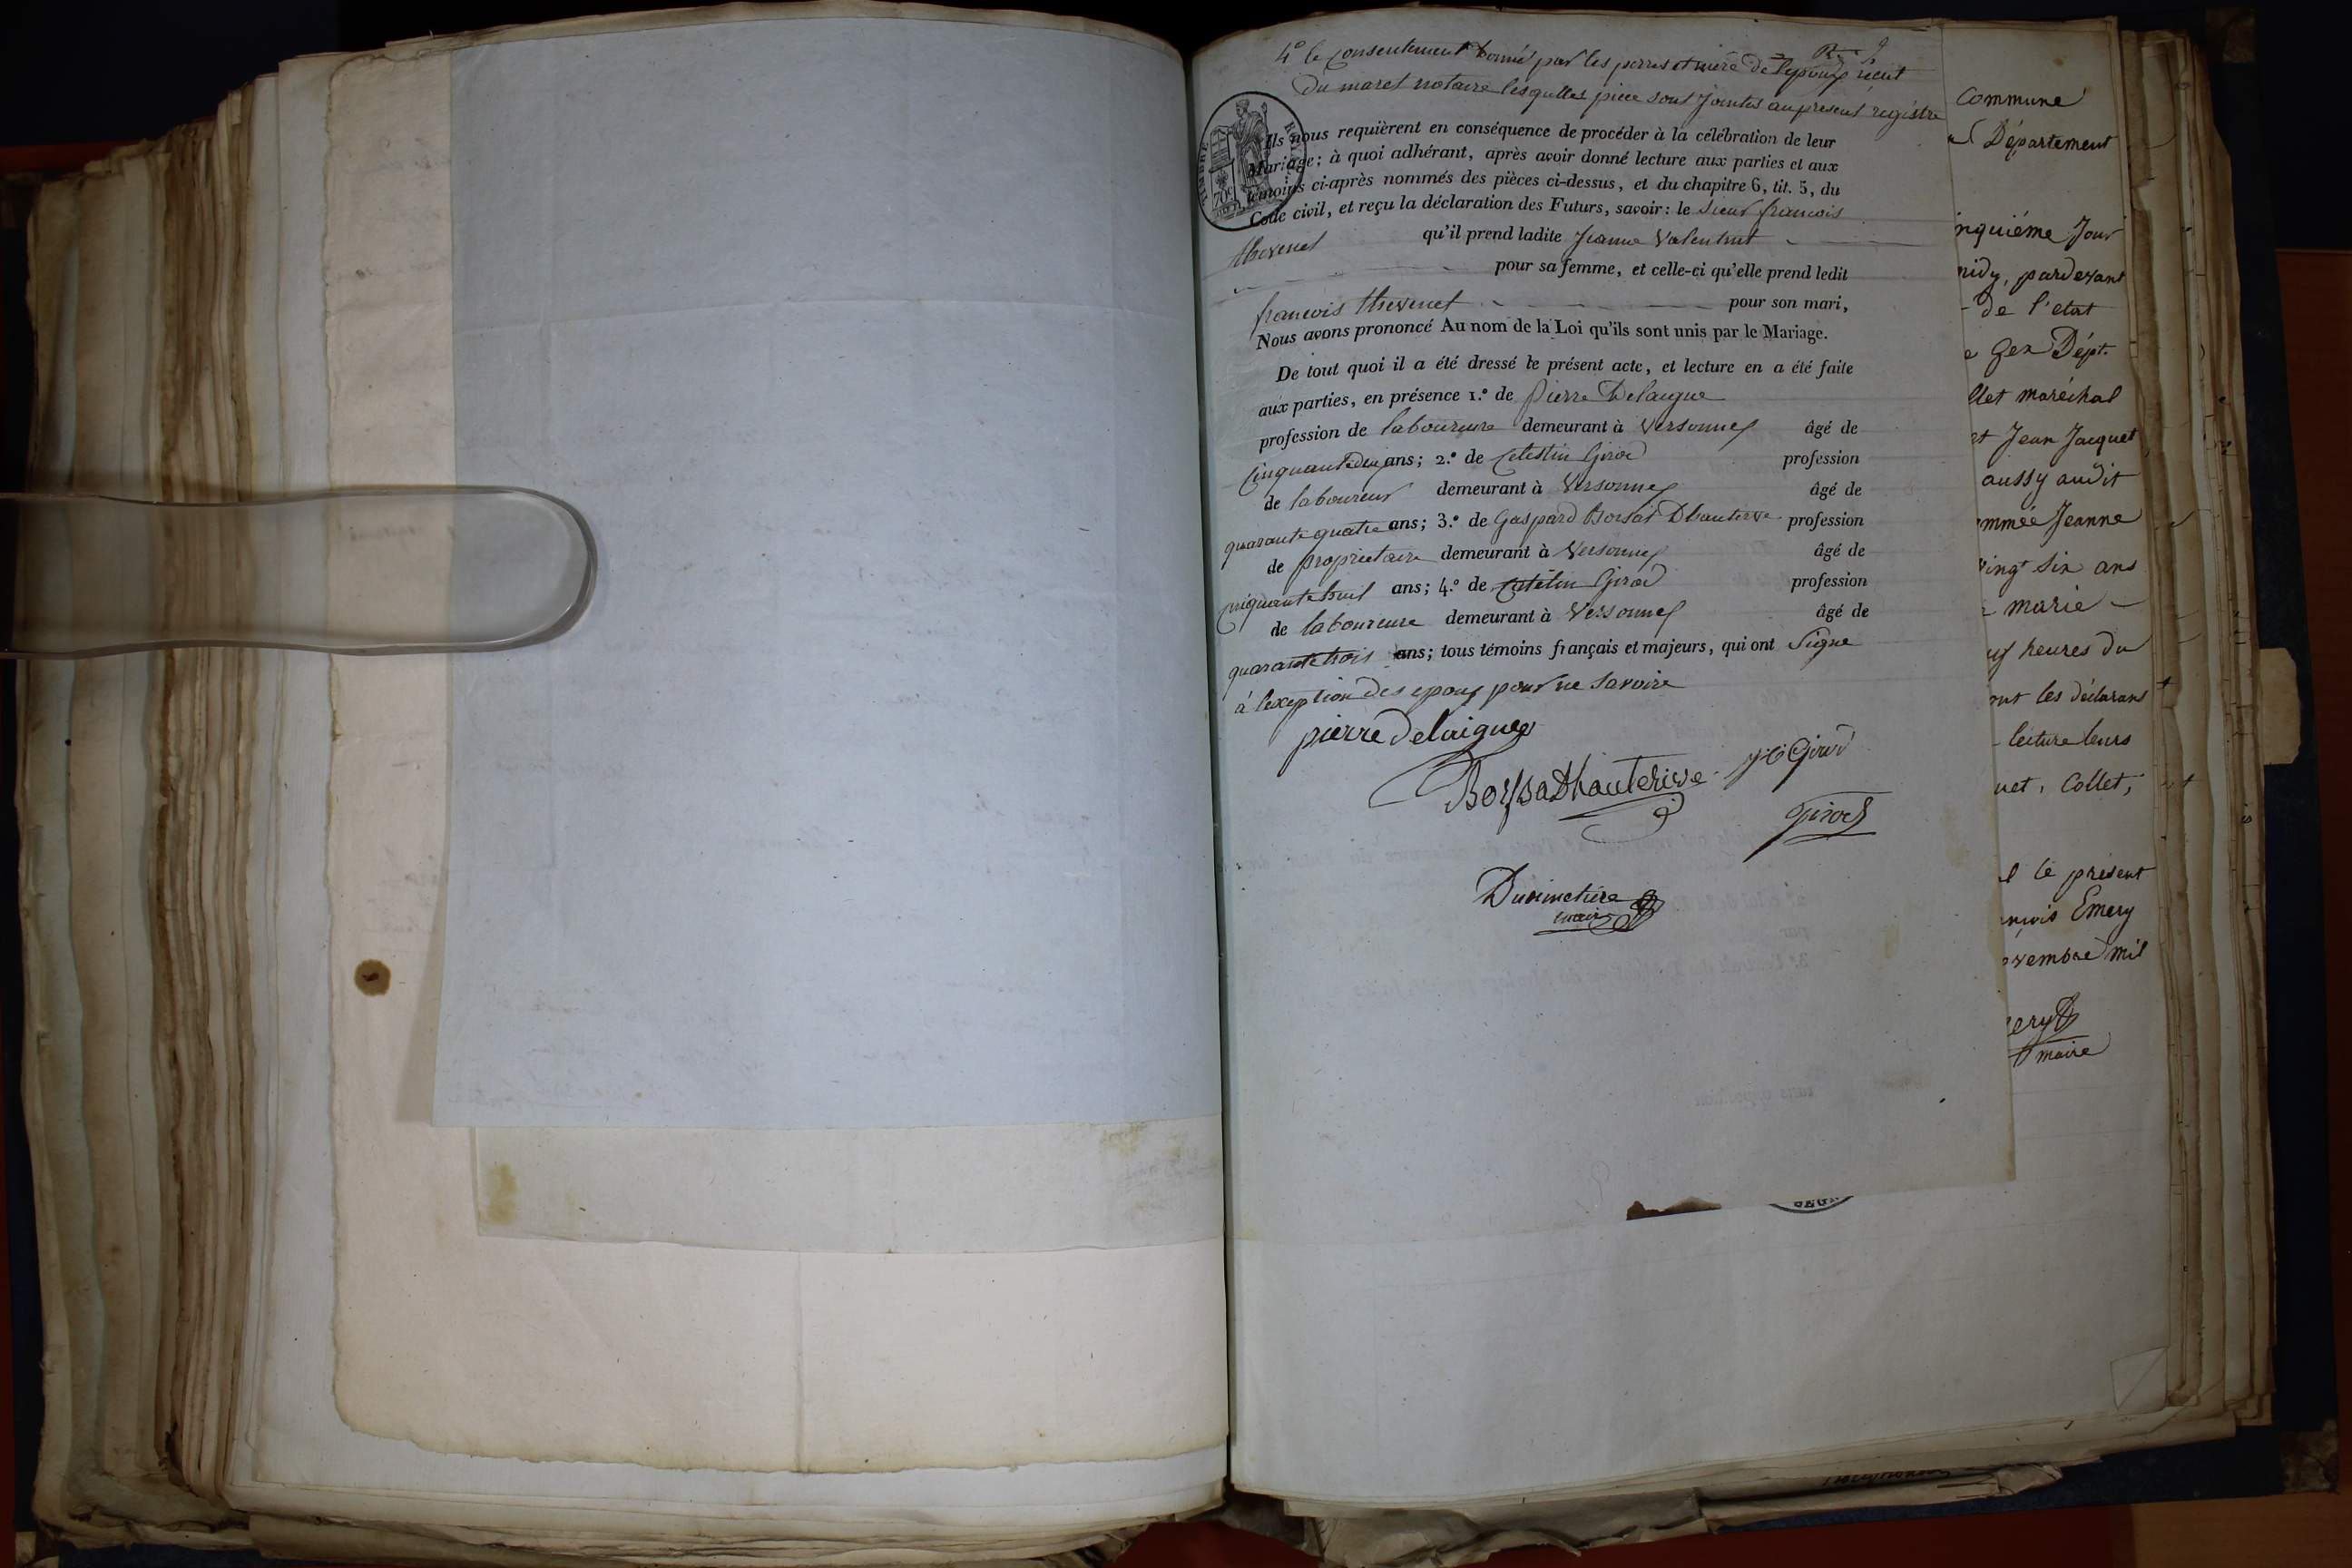 4.º le Consentement donné par les peres et mère de l'epoux récut
Du maret notaire lesquelles piece sont Jointes au present registre
Ils nous requièrent en conséquence de procéder à la célébration de leur
Mariage; à quoi adhérant, après avoir donné lecture aux parties et aux
témoins ci-après nommés des pièces ci-dessus, et du chapitre 6, tit. 5, du
Code civil, et reçu la déclaration des Futurs, savoir: le Sieur francois
thevenet qu'il prend ladite Jeanne Valentint
pour sa femme, et celle-ci qu'elle prend ledit
francois thevenet pour son mari,
Nous avons prononcé Au nom de la Loi qu'ils sont unis par le Mariage.
De tout quoi il a été dressé le présent acte, et lecture en a été faite
aux parties, en présence 1.º de pierre Delaigue
profession de laboureure demeurant à Versonnex âgé de
Cinquantedeux ans; 2.º de Celestin Girod profession
de laboureur demeurant à Versonnex âgé de
quarante quatre ans; 3.º de Gaspard Borsat Dhauterive profession
de proprietaire demeurant à Versonnex âgé de
cinquante huit ans; 4.º de Catelin Girod profession
de laboureure demeurant à Versonnex âgé de
quarante trois ans; tous témoins français et majeurs, qui ont Signe
à l'exeption des epoux pour ne savoire
pierre Delaigue
Borssat Dhauterive
Girod
Girod
Duvimetière
maire
Commune
Département
nquiéme Jour
midy, pardevant
de l'etat
e Gex Dépt.
llet maréchal
et Jean Jacquet
aussy audit
ommée Jeanne
vingt six ans
marie
uf heures du
ont les déclarans
lecture leurs
uet, Collet,
l le présent
ancois Emery
ovembre mil
ery
maire